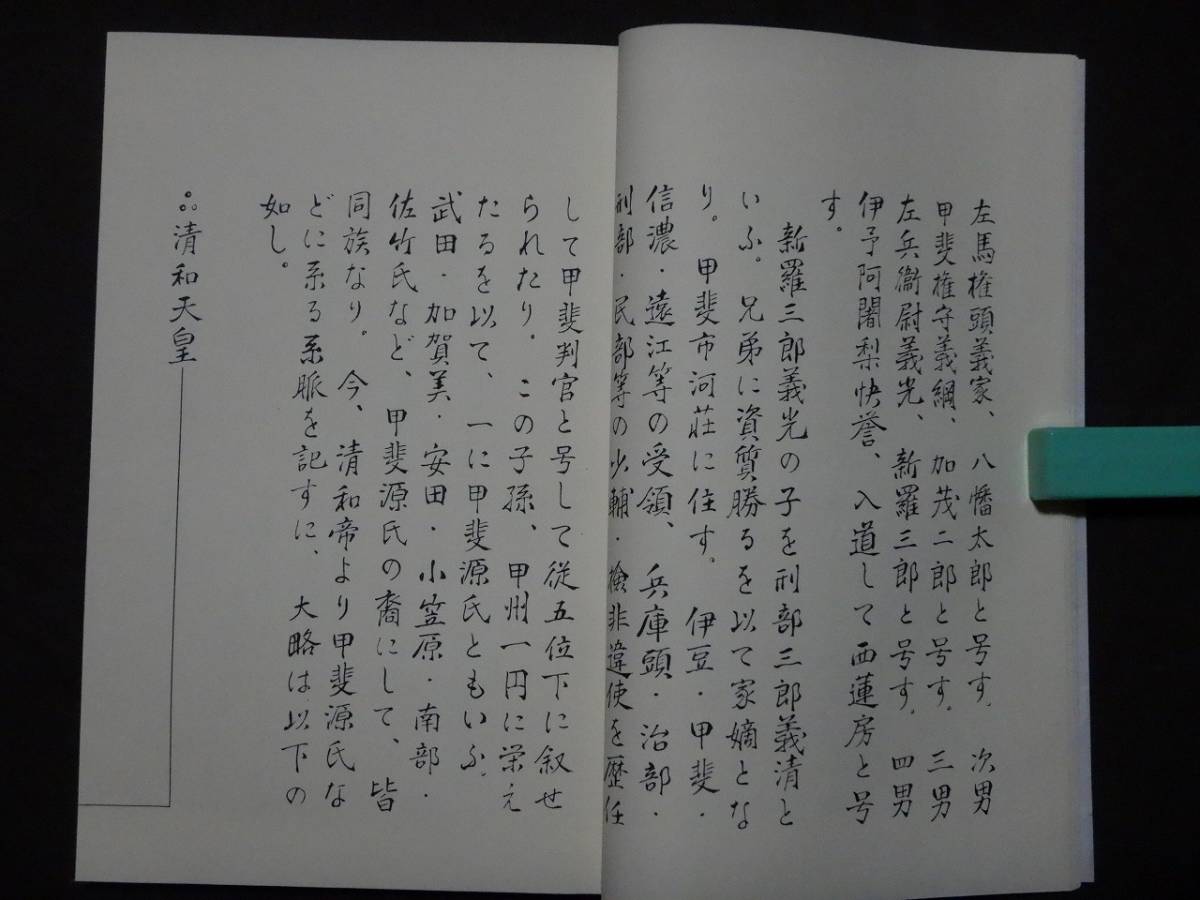 左馬権頭義家、八幡太郎と号す。次男
甲斐権守義綱、加茂二郎と号す。三男
左兵衞尉義光、新羅三郎と号す。四男
伊予阿闍梨快誉、入道して西蓮房と号
す。
新羅三郎義光の子を刑部三郎義清と
いふ。兄弟に資質勝るを以て家嫡とな
り。甲斐市河荘に住す。伊豆・甲斐・
信濃・遠江等の受領、兵庫頭・治部・
刑部・民部等の少輔・検非違使を歴任
して甲斐判官と号して従五位下に叙せ
られたり。この子孫、甲州一円に栄え
たるを以て、一に甲斐源氏ともいふ。
武田・加賀美・安田・小笠原・南部・
佐竹氏など、甲斐源氏の裔にして、皆
同族なり。今、清和帝より甲斐源氏な
どに系る系脈を記すに、大略は以下の
如し。
清和天皇